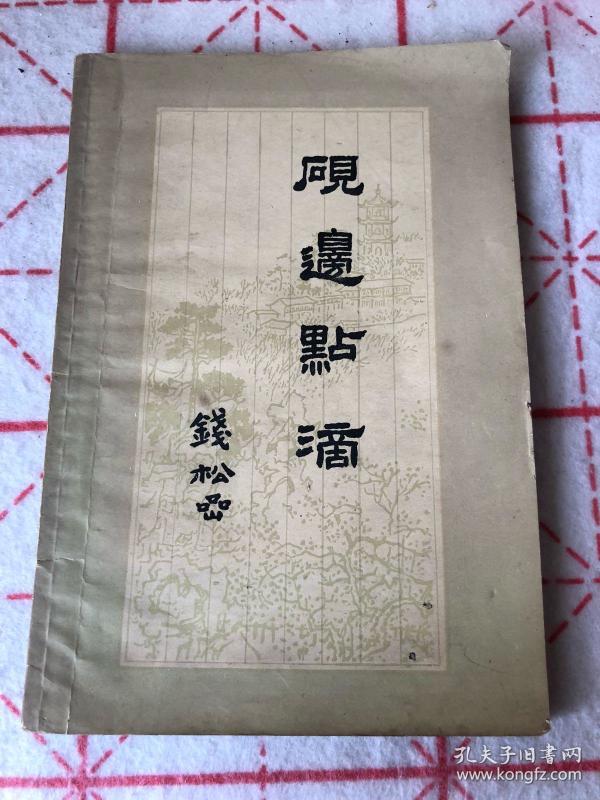 硯邊點滴
錢松喦
孔夫子旧書网
www.kongfz.com